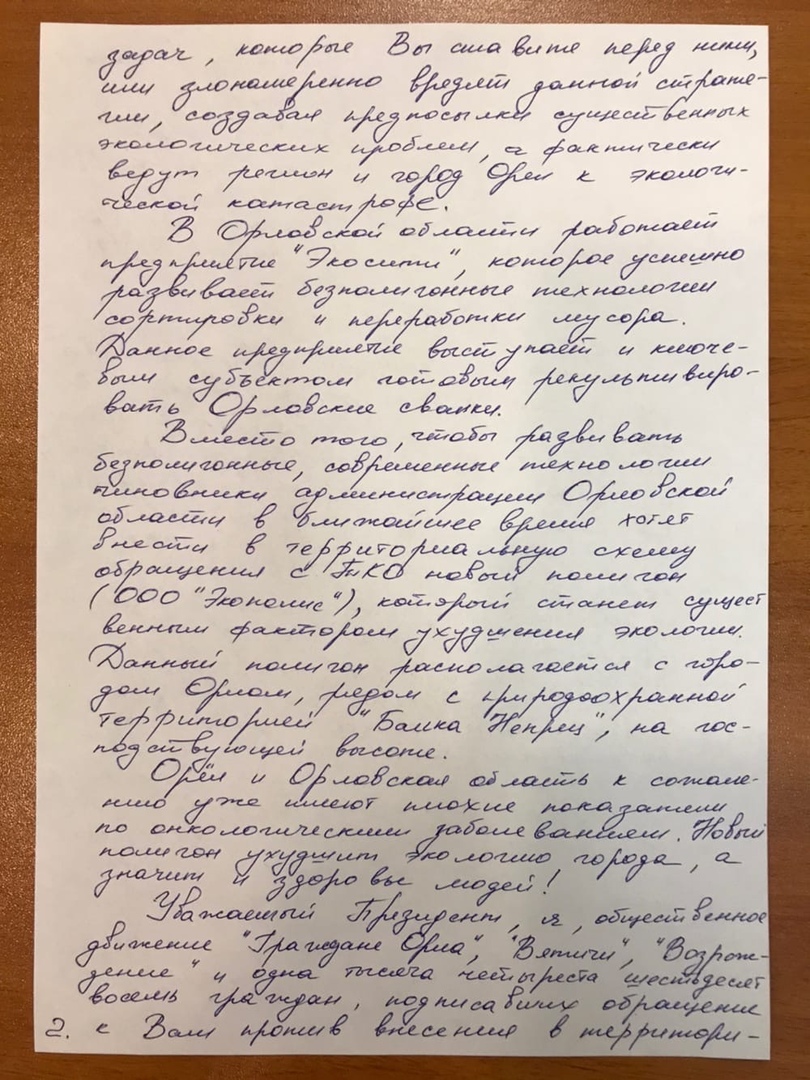 задач, которые Вы ставите перед ними,
или злонамеренно вредят данной страте-
гии, создавая предпосылки существенных
экологических проблем, а фактически
ведут регион и город Орел к экологи-
ческой катастрофе.
В Орловской области работает
предприятие "Экосити", которое успешно
развивает безполигонные технологии
сортировки и переработки мусора.
Данное предприятие выступает и ключе-
вым субъектом готовым рекультивиро-
вать Орловские свалки.
Вместо того, чтобы развивать
безполигонные, современные технологии
чиновники администрации Орловской
области в ближайшее время хотят
внести в территориальную схему
обращения с ТКО новый полигон
(ООО "Экополис"), который станет сущест
венным фактором ухудшения экологии.
Данный полигон располагается с горо-
дом Орлом, рядом с природоохранной
территорией "Балка Непрец", на гос-
подствующей высоте.
Орёл и Орловская область к сожале-
нию уже имеют плохие показатели
по онкологическим заболеваниям. Новый
полигон ухудшит экологию города, а
значит и здоровье людей!
Уважаемый Президент, я, общественное
движение "Граждане Орла", "Вятичи", "Возрож-
дение" и одна тысяча четыреста шестьдесят
восемь граждан, подписавших обращение
2. к Вам против внесения в территори-